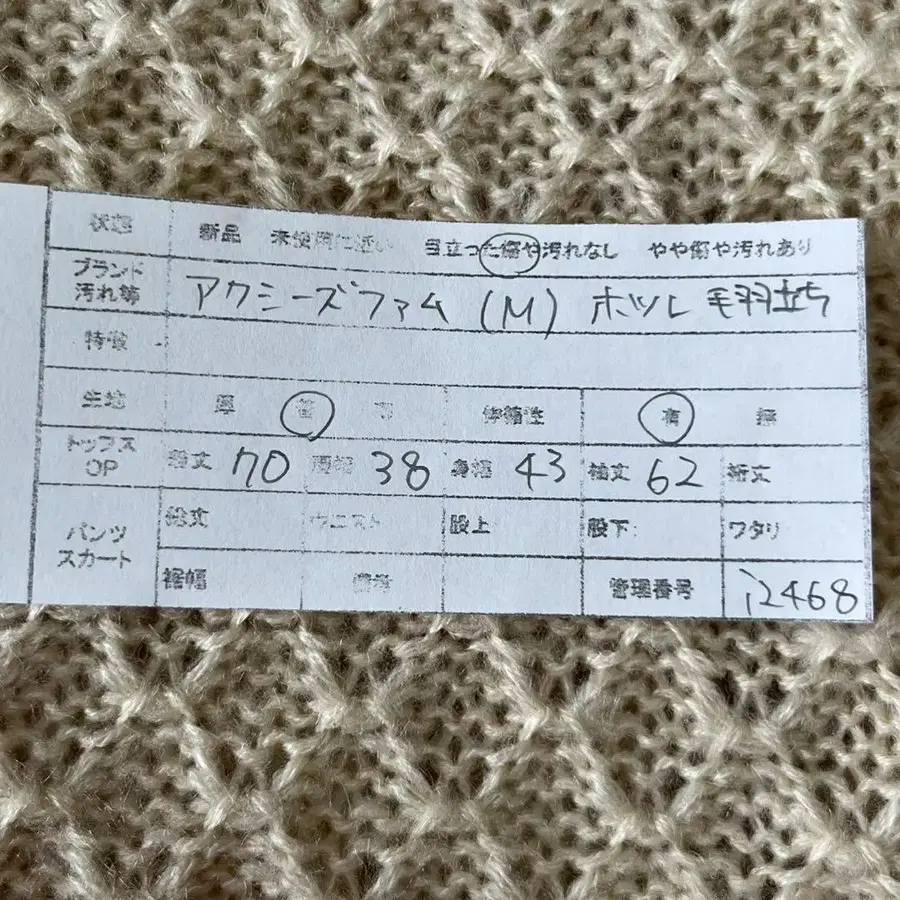 状態 新品 未使用に近い 目立った傷や汚れなし やや傷や汚れあり
ブランド
汚れ等 アクシーズファム (M) ホツレ 毛羽立ち
特徴
生地 厚 普 伸縮性 有 無
トップス
OP 着丈 70 肩幅 38 身幅 43 袖丈 62 裄丈
パンツ
スカート 総丈 ウエスト 股上 股下 ワタリ
裾幅 備考 管理番号 i2468